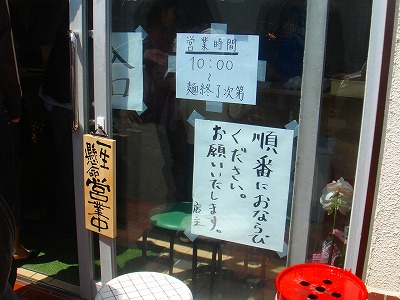 営業時間
10:00
〜
麺終了次第
入口
順番におならび
ください。
お願いいたします。
店主
一生懸命営業中